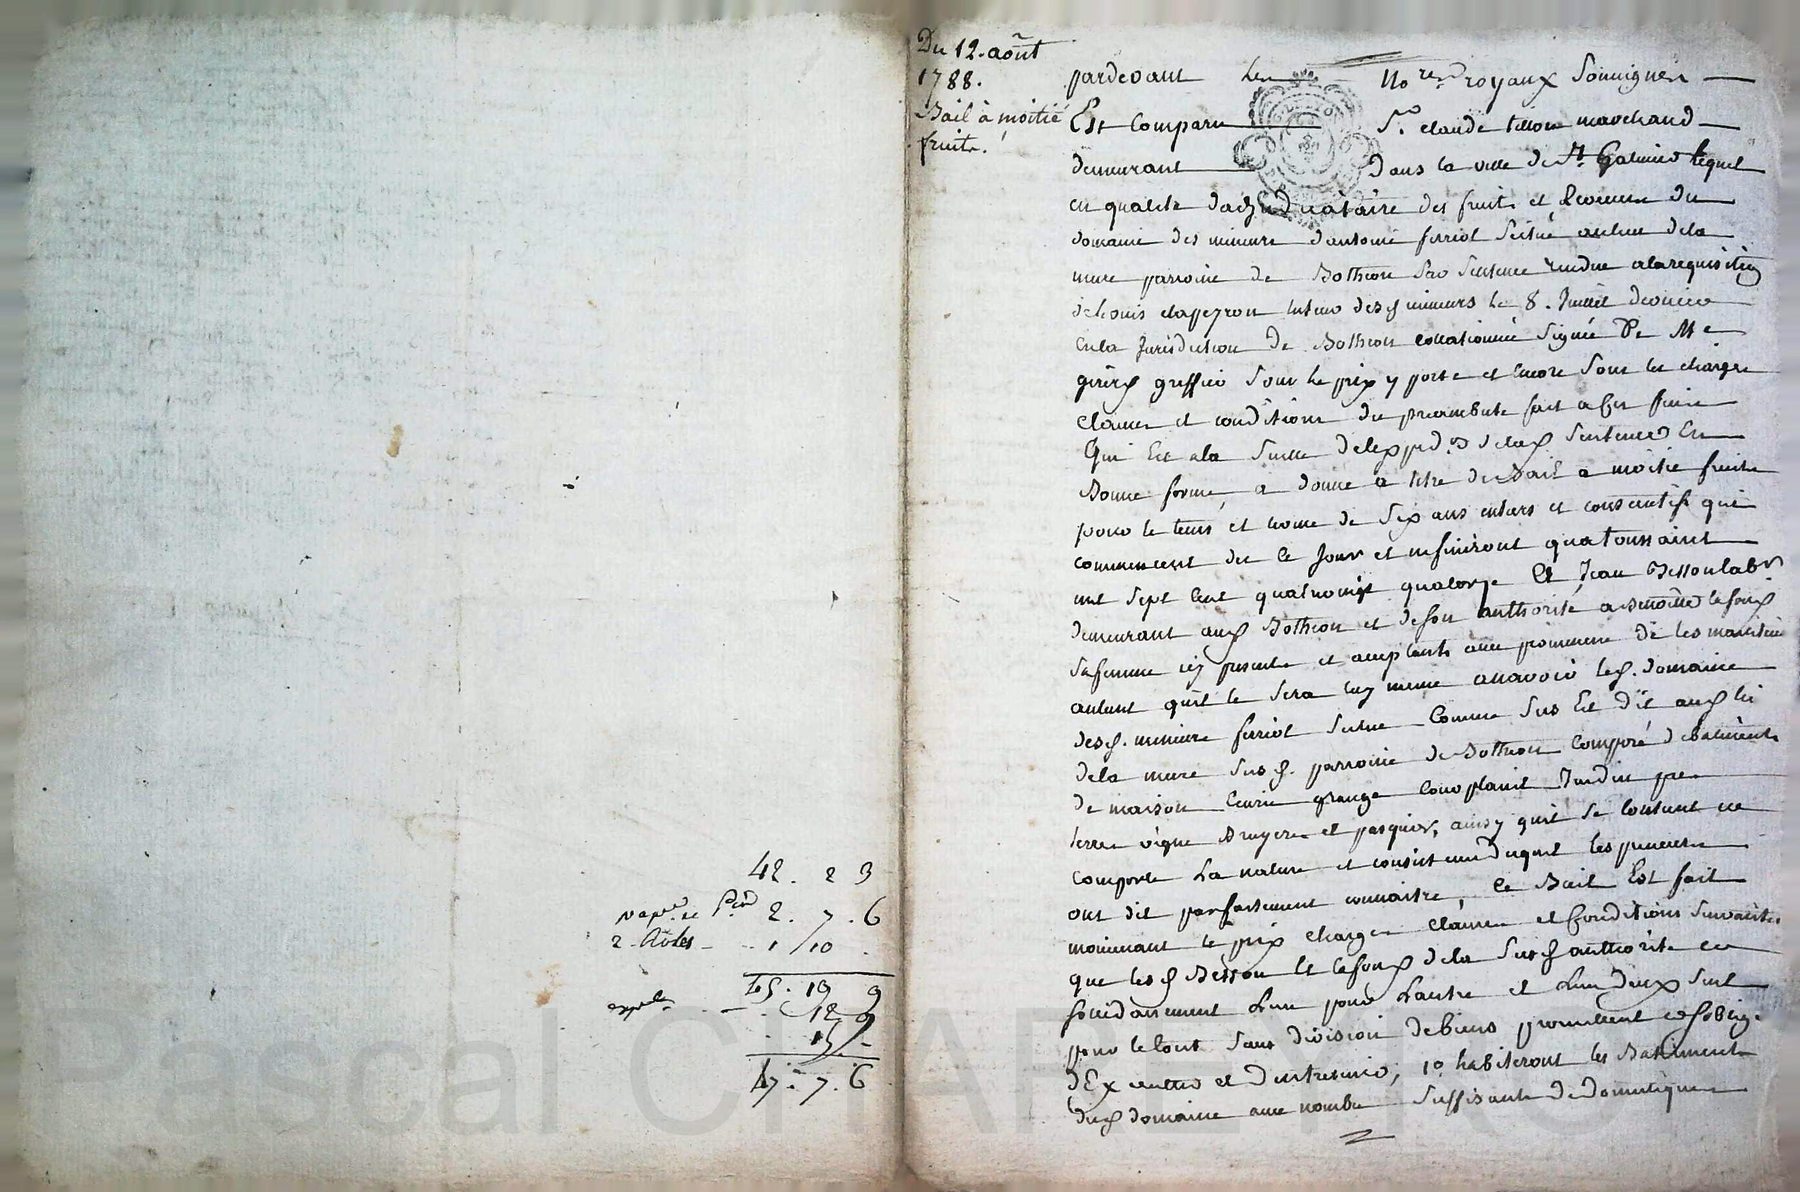 42. 2 3
2. 7. 6
2. Rôles - - 1 / 10
45. 19 9
18 9
47. 7. 6
Du 12. août
1788.
Bail à moitié
fruits.
pardevant les No.res royaux Soussignés
Est comparu Sr. claude tillon marchand
demeurant Dans la ville de St. Galmier lequel
en qualité dadjudicataire des fruits et Revenus du
domaine des mineurs dantoine ferriol Scitué au lieu dela
mure parroisse de Botheon par Sentence rendue alarequisition
de Louis clapeyron tuteur desd mineurs le 8. Juillet dernier
en la Jurisdiction de Botheon collationnée Signée De Me
greffier Sous le prix y porté et encore Sous les charges
clauses et conditions du préambule fait a fin
Qui Est ala Suitte delexped.on delad Sentence En
Bonne forme a donné a titre de Bail a moitié fruits
pour le tems et terme de Six ans entiers et consecutifs qui
commencent des ce Jour et nefiniront qua toussaint
mil Sept Cent quatrevingt quatorze Et Jean Besson labr
demeurant aud Botheon et deson authorité
Safemme icy presents et acceptants avec promesse de les maintenir
autant quil le Sera luy meme assavoir led. domaine
desd. mineurs ferriol Scitué Comme Sus Est dit aud lieu
dela mure Susd. parroisse de Botheon Composé debatiments
de maison Ecurie grange Jardin pres
terres vigne Bruyeres et pasquier, ainsy quil Se contient ce
comporte La nature et consistence Duquel les preneurs
ont dit parfaitement connaitre, Ce Bail Est fait
moiennant le prix charges clauses et Conditions Suivantes
que lesd Besson Et de la Susd authorité
Solidairement Lun pour Lautre et Lun deux Seul
pour le tout Sans division debiens promettent
dExecutter et dentretenir, 1o habiteront les Batiments
dud domaine avec nombre Suffisants de domestiques
Pascal CHAREYRON